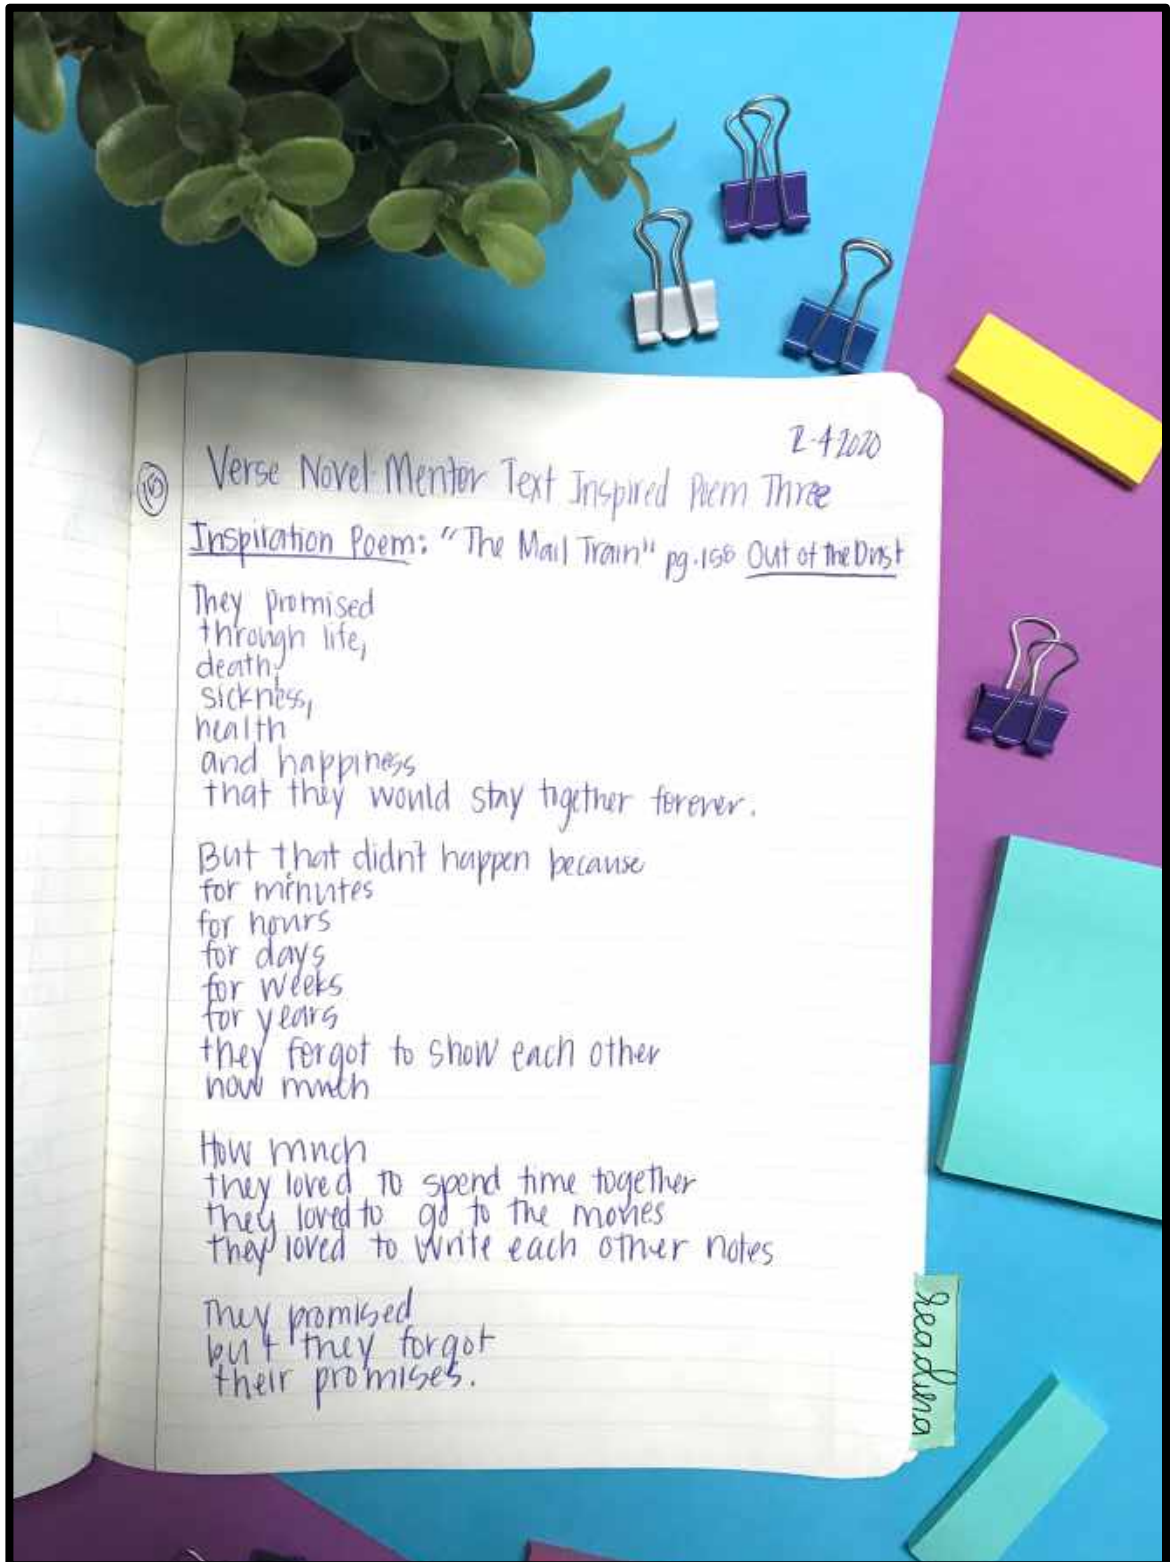 2-4 2020
15
Verse Novel Mentor Text Inspired Poem Three
Inspiration Poem: "The Mail Train" pg. 158 Out of the Dust
They promised
through life,
death,
sickness,
health
and happiness
that they would stay together forever.
But that didn't happen because
for minutes
for hours
for days
for weeks
for years
they forgot to show each other
how much
How much
they loved to spend time together
they loved to go to the movies
they loved to write each other notes
They promised
but they forgot
their promises.
reading